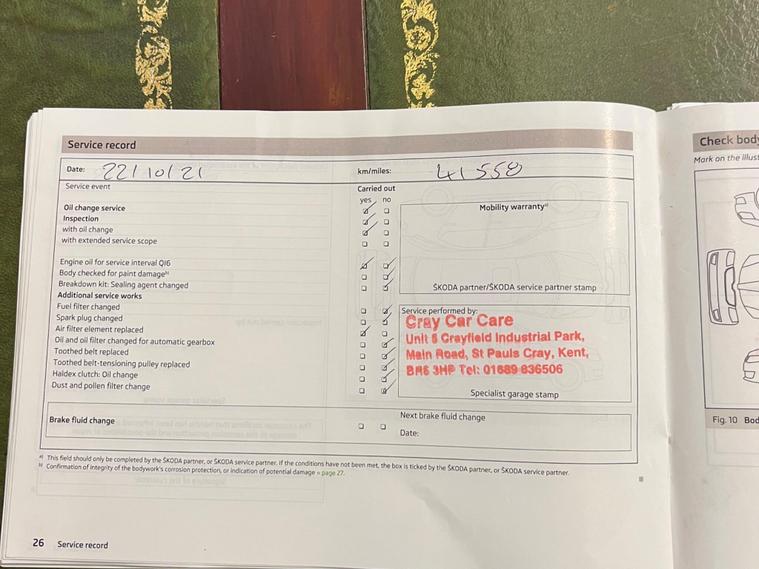 Service record
Date: 22/10/21 km/miles: 41558
Service event Carried out
yes no
Oil change service
Inspection
with oil change
with extended service scope
Mobility warrantyᵃ⁾
Engine oil for service interval QI6
Body checked for paint damageᵇ⁾
Breakdown kit: Sealing agent changed
ŠKODA partner/ŠKODA service partner stamp
Additional service works
Fuel filter changed
Spark plug changed
Air filter element replaced
Oil and oil filter changed for automatic gearbox
Toothed belt replaced
Toothed belt-tensioning pulley replaced
Haldex clutch: Oil change
Dust and pollen filter change
Service performed by:
Cray Car Care
Unit 5 Crayfield Industrial Park,
Main Road, St Pauls Cray, Kent,
BR5 3HP Tel: 01689 836506
Specialist garage stamp
Brake fluid change
Next brake fluid change
Date:
ᵃ⁾ This field should only be completed by the ŠKODA partner, or ŠKODA service partner. If the conditions have not been met, the box is ticked by the ŠKODA partner, or ŠKODA service partner.
ᵇ⁾ Confirmation of integrity of the bodywork's corrosion protection, or indication of potential damage » page 27.
26 Service record
Check body
Mark on the illust
Fig. 10 Bod